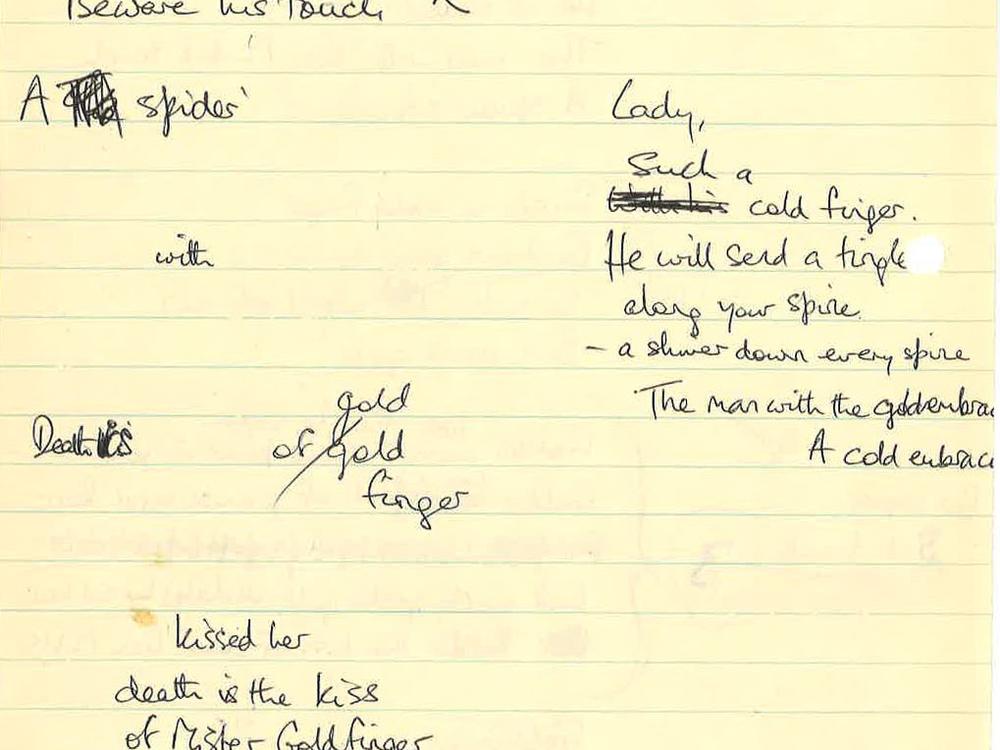 Beware his Touch
A spider's
with
Death is
gold
of gold
finger
kissed her
death is the kiss
of Mister Goldfinger
Lady,
Such a
cold finger.
He will send a tingle
along your spine.
- a shiver down every spine
The man with the golden embrac
A cold embrac